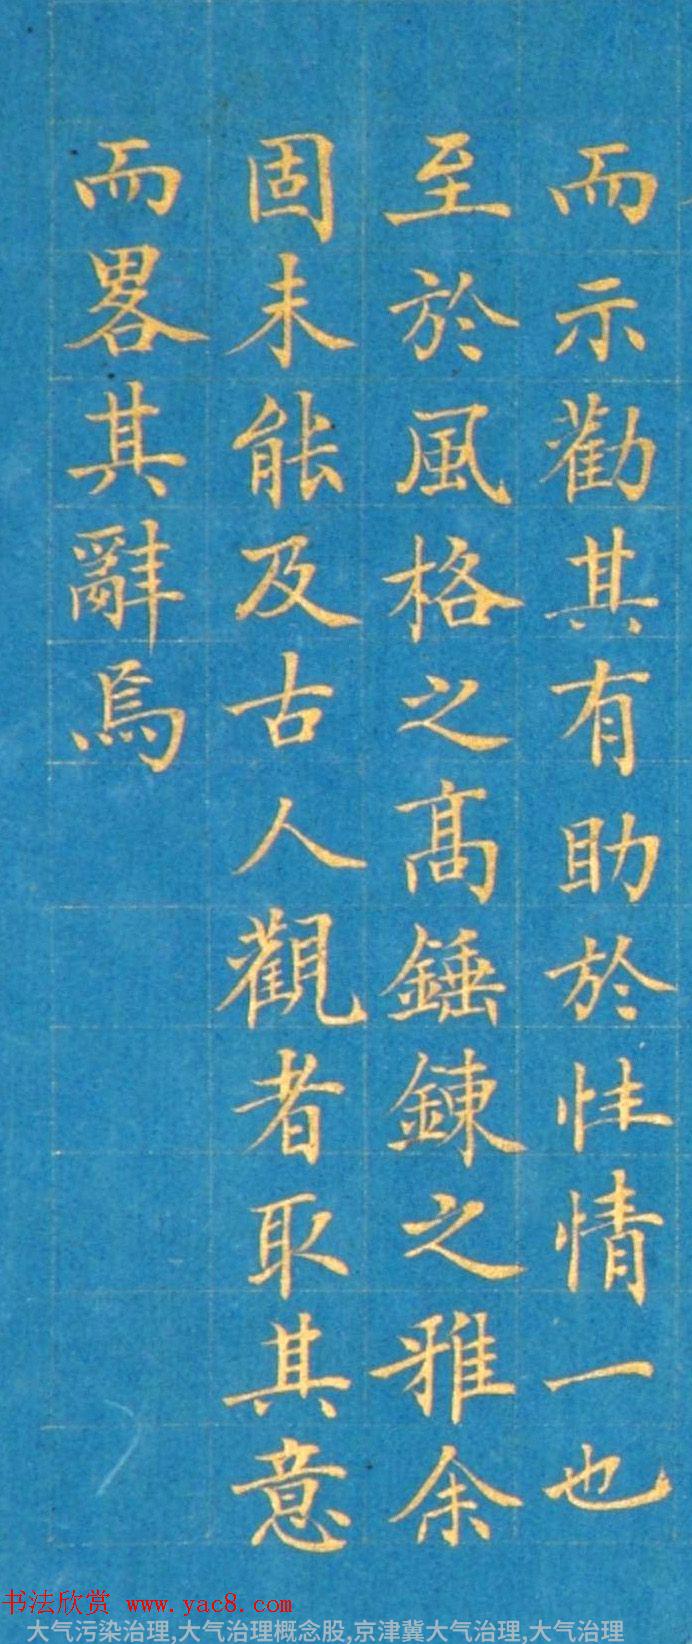 而示勸其有助於性情一也
至於風格之高錘鍊之雅余
固未能及古人觀者取其意
而畧其辭焉
书法欣赏 www.yac8.com
大气污染治理,大气治理概念股,京津冀大气治理,大气治理